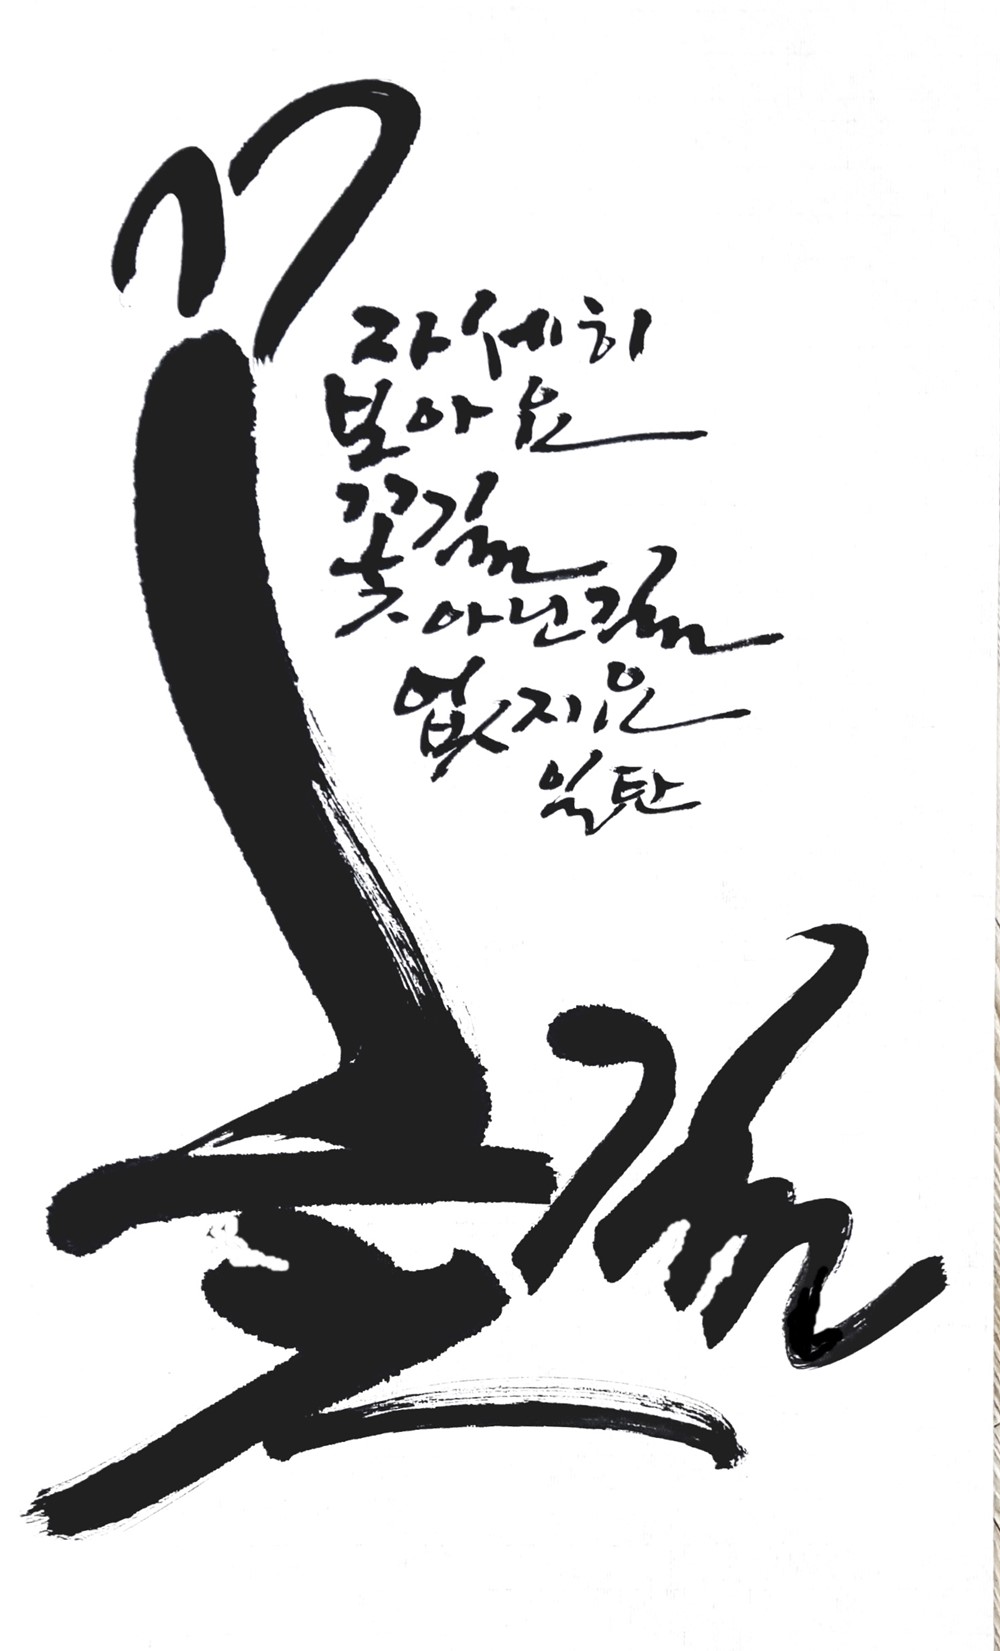 꽃길
자세히
보아요
꽃길
아닌 길
없지요
일탄